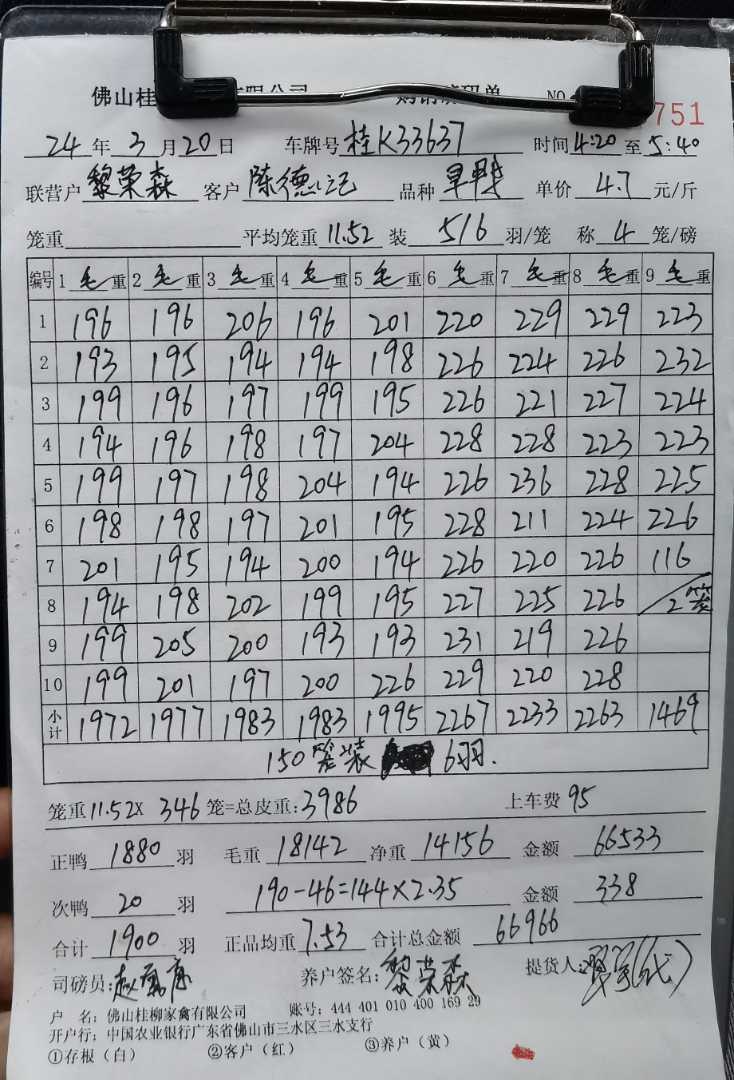 佛山桂 有限公司 购销磅码单 NO 751
24 年 3 月 20 日 车牌号 桂K33637 时间 4:20 至 5:40
联营户 黎荣森 客户 陈德记 品种 单价 4.7 元/斤
笼重 平均笼重 11.52 装 5/6 羽/笼 称 4 笼/磅
编号 1 毛 重 2 毛 重 3 毛 重 4 毛 重 5 毛 重 6 毛 重 7 毛 重 8 毛 重 9 毛 重
1 196 196 206 196 201 220 229 229 223
2 193 195 194 194 198 226 224 226 232
3 199 196 197 199 195 226 221 227 224
4 194 196 198 197 204 228 228 223 223
5 199 197 198 204 194 226 236 228 225
6 198 198 197 201 195 228 211 224 226
7 201 195 194 200 194 226 220 226 116
8 194 198 202 199 195 227 225 226 2笼
9 199 205 200 193 193 231 219 226
10 199 201 197 200 226 229 220 228
小计 1972 1977 1983 1983 1995 2267 2233 2263 1469
150笼装 6羽.
笼重 11.52X 346 笼=总皮重: 3986 上车费 95
正鸭 1880 羽 毛重 18142 净重 14156 金额 66533
次鸭 20 羽 190-46=144×2.35 金额 338
合计 1900 羽 正品均重 7.53 合计总金额 66966
司磅员: 养户签名: 黎荣森 提货人:
户 名: 佛山桂柳家禽有限公司 账号: 444 401 010 400 169 29
开户行: 中国农业银行广东省佛山市三水区三水支行
①存根(白) ②客户(红) ③养户(黄)